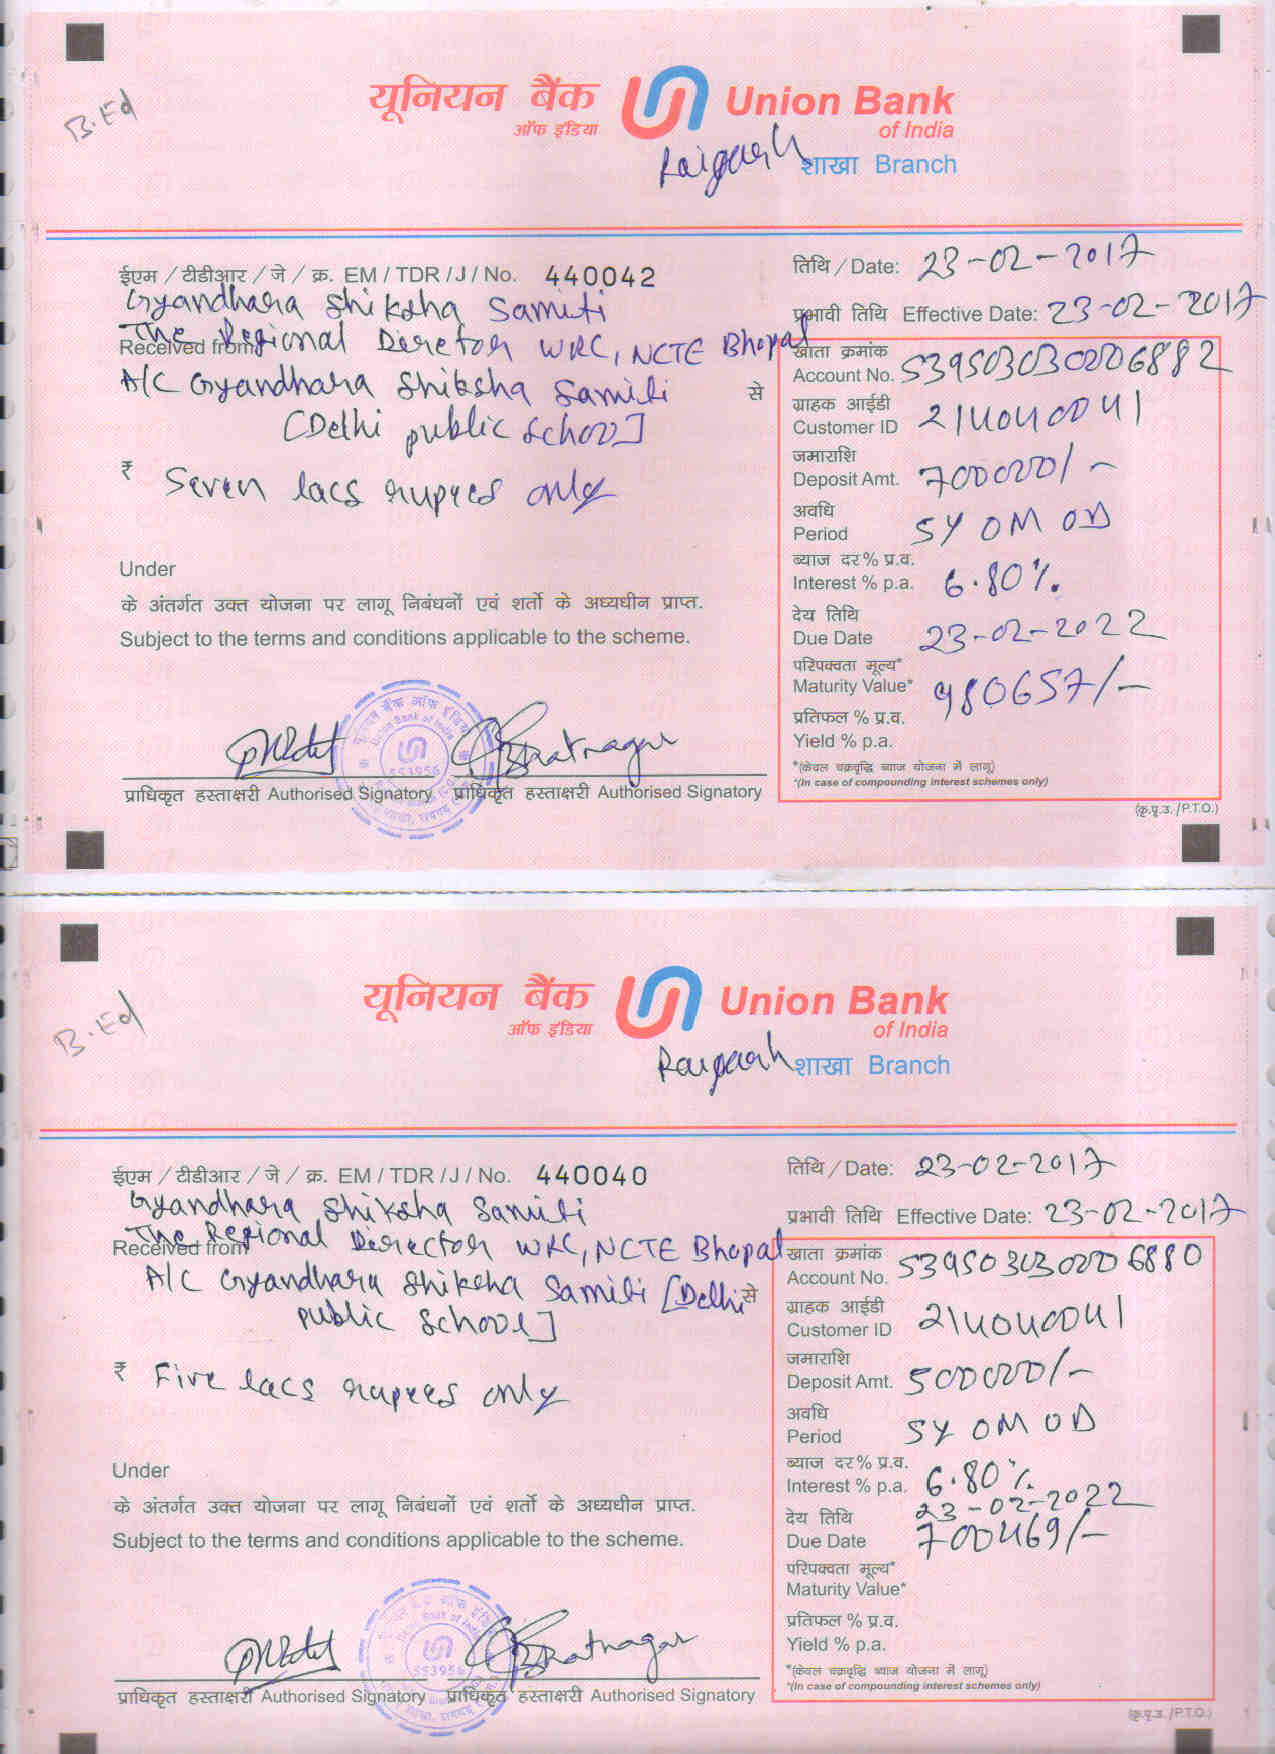 B.Ed
यूनियन बैंक Union Bank
ऑफ इंडिया of India
Raigarh शाखा Branch
ईएम / टीडीआर / जे / क्र. EM / TDR / J / No. 440042
तिथि / Date: 23-02-2017
Gyandhara Shiksha Samiti
प्रभावी तिथि Effective Date: 23-02-2017
The Regional Director WRC, NCTE Bhopal
Received from
A/C Gyandhara Shiksha Samiti से
[Delhi public School]
₹ Seven lacs rupees only
खाता क्रमांक
Account No. 539503030006882
ग्राहक आईडी
Customer ID 214040041
जमाराशि
Deposit Amt. 700000/-
अवधि
Period 5Y 0M 0D
ब्याज दर% प्र.व.
Interest % p.a. 6.80%
देय तिथि
Due Date 23-02-2022
परिपक्वता मूल्य*
Maturity Value* 980657/-
प्रतिफल % प्र.व.
Yield % p.a.
*(केवल चक्रवृद्धि ब्याज योजना में लागू)
*(In case of compounding interest schemes only)
Under
के अंतर्गत उक्त योजना पर लागू निबंधनों एवं शर्तो के अध्यधीन प्राप्त.
Subject to the terms and conditions applicable to the scheme.
यूनियन बैंक ऑफ इंडिया
Union Bank of India
553956
Bhatnagar
प्राधिकृत हस्ताक्षरी Authorised Signatory प्राधिकृत हस्ताक्षरी Authorised Signatory
(कृ.पृ.उ. /P.T.O.)
B.Ed
यूनियन बैंक Union Bank
ऑफ इंडिया of India
Raigarh शाखा Branch
ईएम / टीडीआर / जे / क्र. EM / TDR / J / No. 440040
तिथि / Date: 23-02-2017
Gyandhara Shiksha Samiti
प्रभावी तिथि Effective Date: 23-02-2017
The Regional Director WRC, NCTE Bhopal
Received from
A/C Gyandhara Shiksha Samiti [Delhi से
public School]
₹ Five lacs rupees only
खाता क्रमांक
Account No. 539503030006880
ग्राहक आईडी
Customer ID 214040041
जमाराशि
Deposit Amt. 500000/-
अवधि
Period 5Y 0M 0D
ब्याज दर% प्र.व.
Interest % p.a. 6.80%
23-02-2022
देय तिथि
Due Date 700469/-
परिपक्वता मूल्य*
Maturity Value*
प्रतिफल % प्र.व.
Yield % p.a.
*(केवल चक्रवृद्धि ब्याज योजना में लागू)
*(In case of compounding interest schemes only)
Under
के अंतर्गत उक्त योजना पर लागू निबंधनों एवं शर्तो के अध्यधीन प्राप्त.
Subject to the terms and conditions applicable to the scheme.
553956
Bhatnagar
प्राधिकृत हस्ताक्षरी Authorised Signatory प्राधिकृत हस्ताक्षरी Authorised Signatory
(कृ.पृ.उ. /P.T.O.)